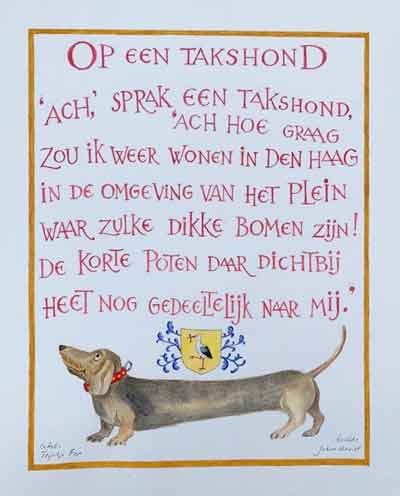 OP EEN TAKSHOND
'ACH,' SPRAK EEN TAKSHOND,
'ACH HOE GRAAG
ZOU IK WEER WONEN IN DEN HAAG
IN DE OMGEVING VAN HET PLEIN
WAAR ZULKE DIKKE BOMEN ZIJN!
DE KORTE POTEN DAAR DICHTBIJ
HEET NOG GEDEELTELIJK NAAR MIJ.'